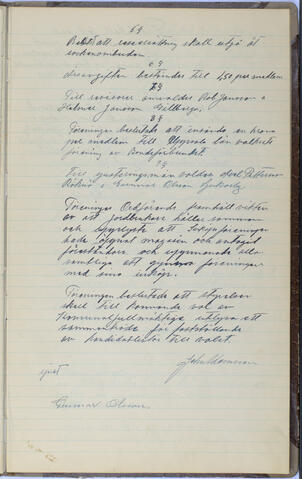 5 §
att reseersättning skall utgå åt
ombuden.
6 §
Årsavgiften bestämdes till 4,50 per medlem
7 §
Till revisorer omvaldes Rob. Jansson o
Helmer Jansson Gillberga.
8 §
Föreningen beslutade att insända en krona
per medlem till Uppsala läns valkrets
förening av Bondeförbundet.
9 §
Till justeringsmän valdes Karl Petterson
o Gunnar Olsson
Föreningens Ordförande framhöll vikten
av att jordbrukare håller samman
och att Lokalföreningen
hade öppnat magasin och antagit
föreståndare och uppmanade alla
samtliga att gynna föreningen
med sina inköp.
Föreningen beslutade att styrelsen
skall till kommande val av
kommunalfullmäktige utlysa ett
sammanträde för fastställande
av kandidatlistor till valet.
just
Gunnar Olsson